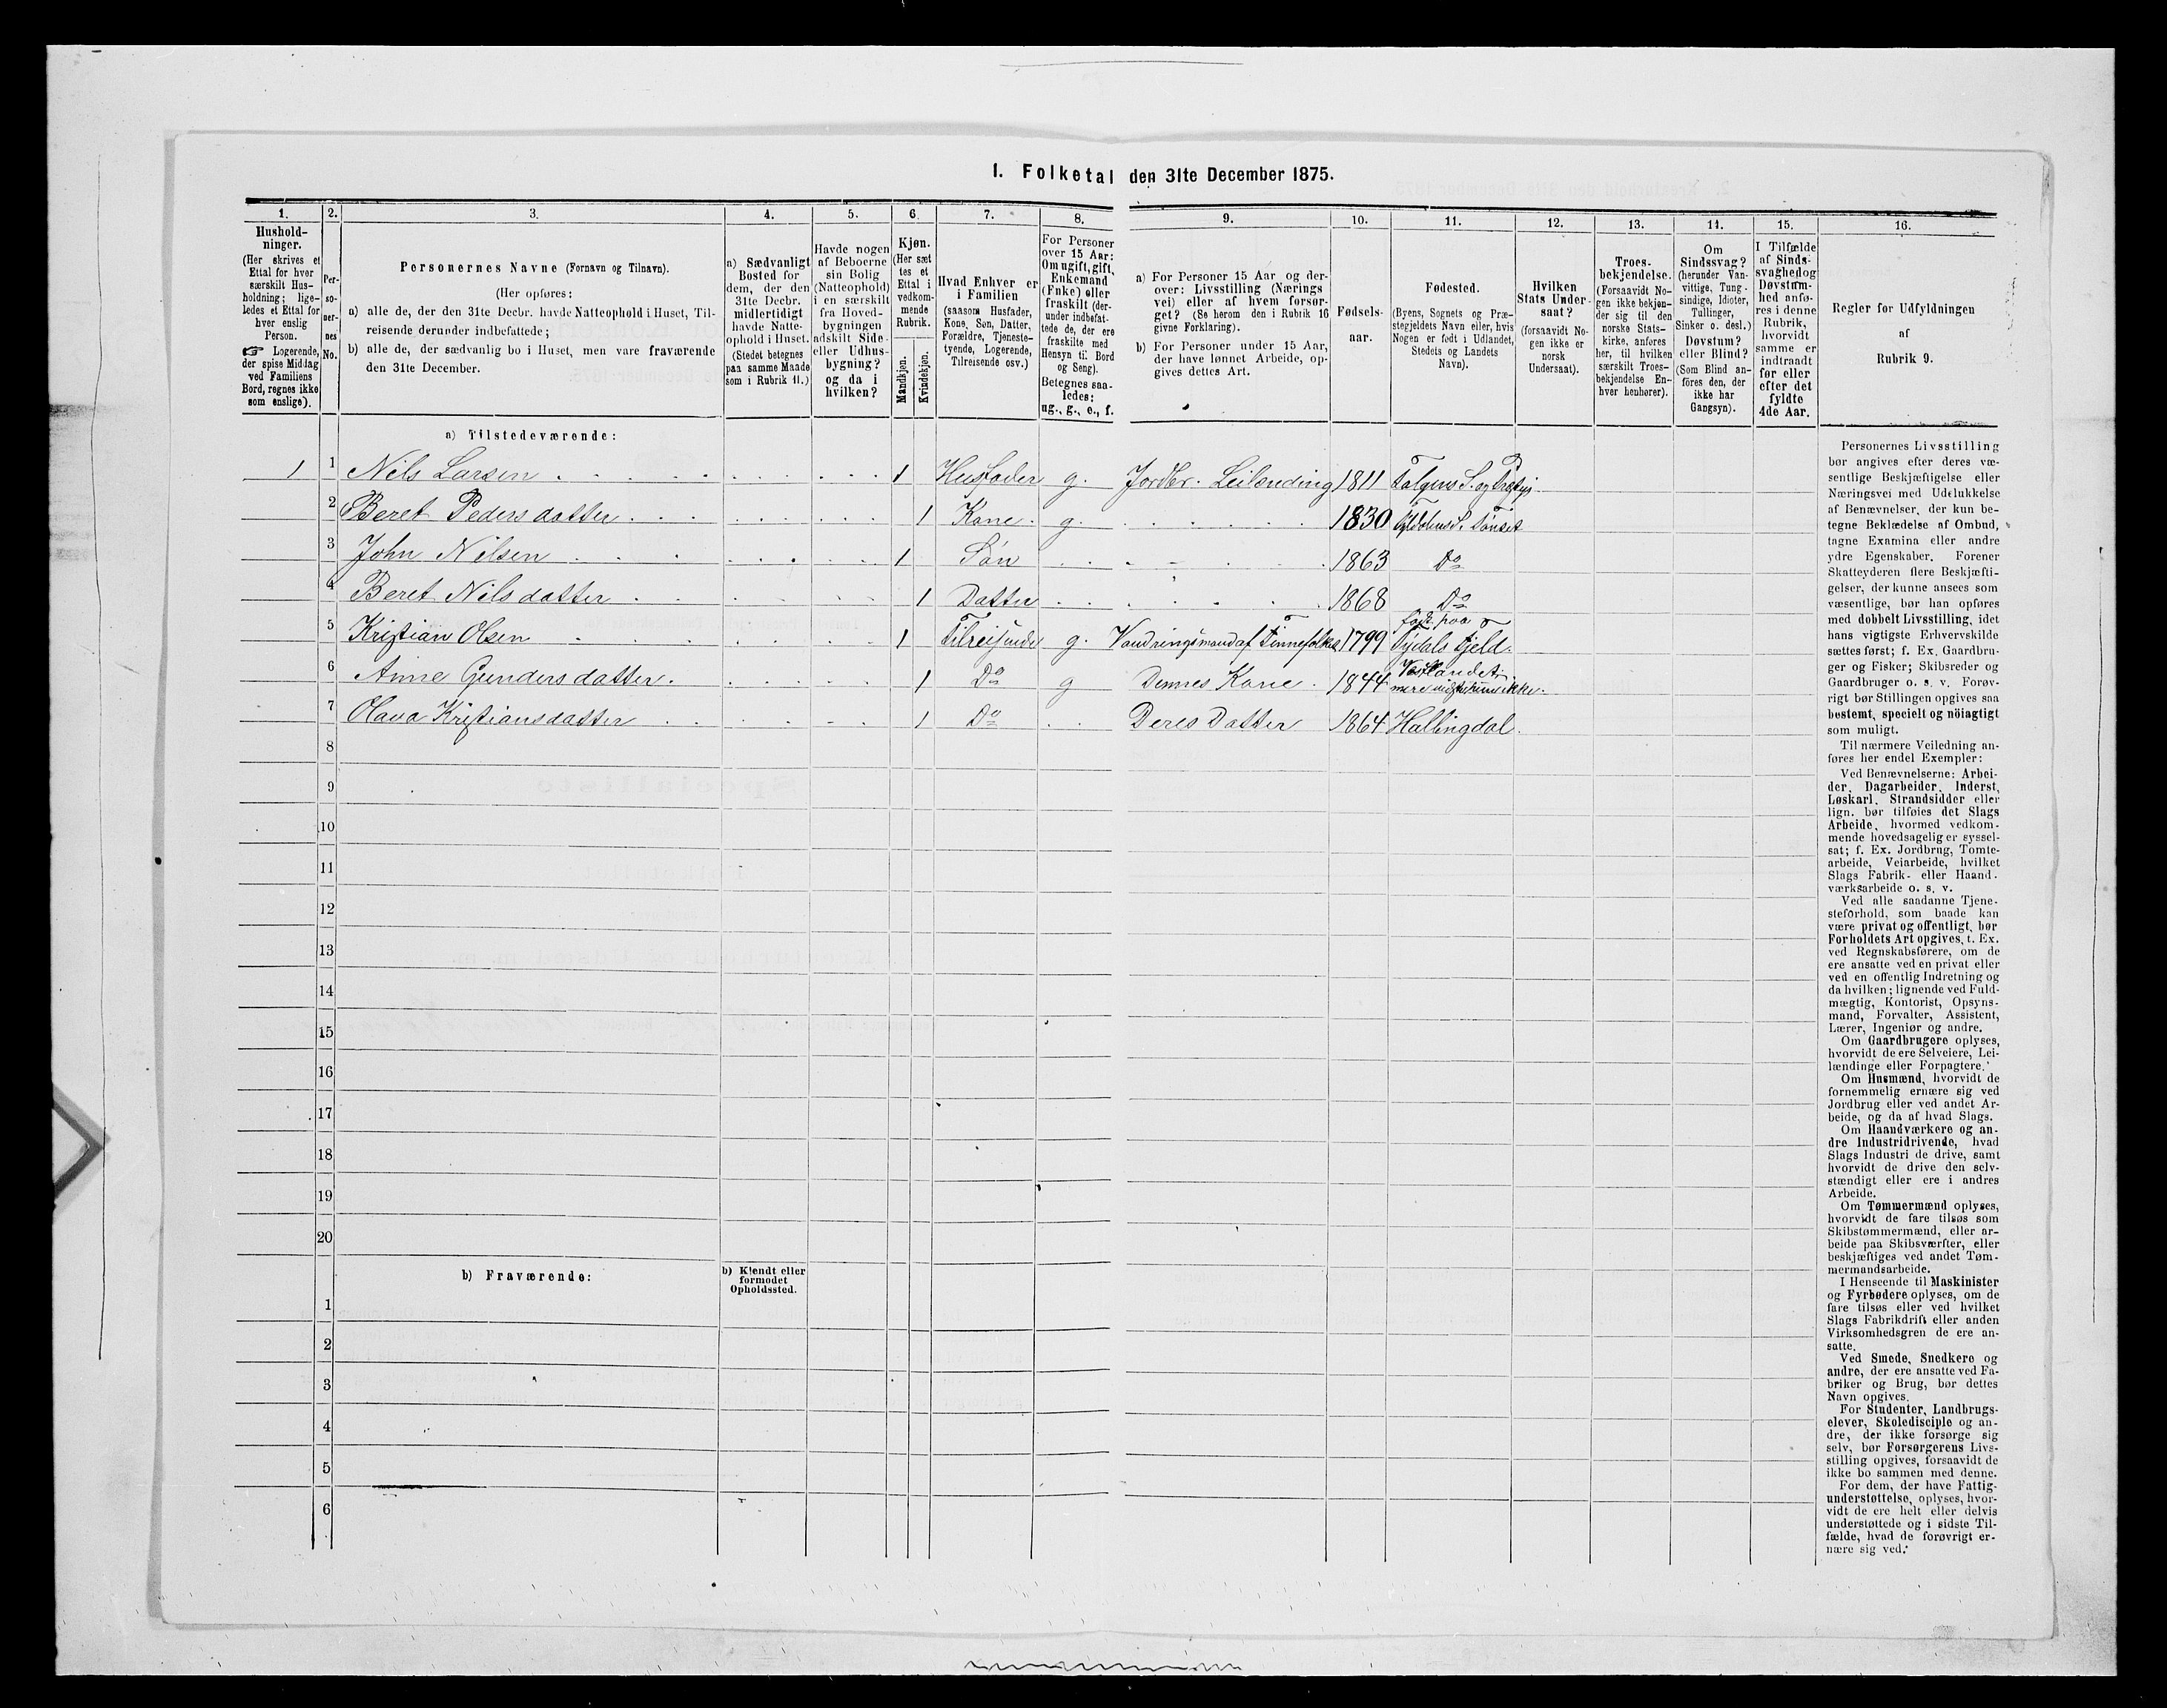 1. Folketal den 31te December 1875.
1.
2.
3.
4.
5.
6.
7.
8.
9.
10.
11.
12.
13.
14.
15.
16.
Hushold-
ninger.
(Her skrives et
Ettal for hver
særskilt Hus-
holdning; lige-
ledes et Ettal for
hver enslig
Person.
☞ Logerende,
der spise Middag
ved Familiens
Bord, regnes ikke
som enslige).
Per-
so-
ner-
nes
No.
Personernes Navne (Fornavn og Tilnavn).
(Her opføres:
a) alle de, der den 31te Decbr. havde Natteophold i Huset, Til-
reisende derunder indbefattede;
b) alle de, der sædvanlig bo i Huset, men vare fraværende
den 31te December.
a) Sædvanligt
Bosted for
dem, der den
31te Decbr.
midlertidigt
havde Natte-
ophold i Huset.
(Stedet betegnes
paa samme Maade
som i Rubrik 11.)
Havde nogen
af Beboerne
sin Bolig
(Natteophold)
i en særskilt
fra Hoved-
bygningen
adskilt Side-
eller Udhus-
bygning?
og da i
hvilken?
Kjøn.
(Her sæt
tes et
Ettal i
vedkom-
mende
Rubrik.
Mandkjøn.
Kvindekjøn.
Hvad Enhver er
i Familien
(saasom Husfader,
Kone, Søn, Datter,
Forældre, Tjeneste-
tyende, Logerende,
Tilreisende osv.)
For Personer
over 15 Aar:
Om ugift, gift,
Enkemand
(Enke) eller
fraskilt (der-
under indbefat-
tede de, der ere
fraskilte med
Hensyn til Bord
og Seng).
Betegnes saa-
ledes:
ug., g., e., f.
a) For Personer 15 Aar og der-
over: Livsstilling (Nærings
vei) eller af hvem forsør-
get? (Se herom den i Rubrik 16
givne Forklaring).
b) For Personer under 15 Aar,
der have lønnet Arbeide, op-
gives dettes Art.
Fødsels-
aar.
Fødested.
(Byens, Sognets og Præ-
stegjeldets Navn eller, hvis
Nogen er født i Udlandet,
Stedets og Landets
Navn).
Hvilken
Stats Under-
saat?
(forsaavidt No-
gen ikke er
norsk
Undersaat).
Troes-
bekjendelse.
(Forsaavidt No-
gen ikke bekjen-
der sig til den
norske Stats-
kirke, anføres
her, til hvilken
særskilt Troes-
bekjendelse En-
hver henhører).
Om
Sindssvag?
(herunder Van-
vittige, Tung-
sindige, Idioter,
Tullinger,
Sinker o. desl.)
Døvstum?
eller Blind?
(Som Blind an-
föres den, der
ikke har
Gangsyn).
I Tilfælde
af Sinds-
svaghed og
Døvstum-
hed anfø-
res i denne
Rubrik,
hvorvidt
samme er
indtraadt
før eller
efter det
fyldte
4de Aar.
Regler for Udfyldningen
af
Rubrik 9.
a) Tilstedeværende:
1 1 Nils Larsen 1 Husfader g. Jordbr. Leilending 1811 Tolgens S. og Præstgj.
2 Beret Pedersdatter 1 Kone g. 1830 Tønset
3 John Nilsen 1 Søn 1863 Do
4 Beret Nilsdatter 1 Datter 1868 Do
5 Kristian Olsen 1 Tilreisende g. Vandringsmand af Finnefolket 1799 født paa Tydals Fjeld.
6 Anne Gundersdatter. 1 Do g Dennes Kone 1844 Vestlandet. mere vidste hun ikke.
7 Olava Kristiansdatter 1 Do Deres Datter 1864 Hallingdal.
8
9
10
11
12
13
14
15
16
17
18
19
20
b) Fraværende:
b) Kjendt eller
formodet
Opholdssted.
1
2
3
4
5
6
Personernes Livsstilling
bør angives efter deres væ-
sentlige Beskjæftigelse eller
Næringsvei med Udelukkelse
af Benævnelser, der kun be-
tegne Beklædelse af Ombud,
tagne Examina eller andre
ydre Egenskaber. Forener
Skatteyderen flere Beskjæfti-
gelser, der kunne ansees som
væsentlige, bør han opføres
med dobbelt Livsstilling, idet
hans vigtigste Erhvervskilde
sættes først; f. Ex. Gaardbru-
ger og Fisker; Skibsreder og
Gaardbruger o. s. v. Forøv-
rigt bør Stillingen opgives saa
bestemt, specielt og nöiagtigt
som muligt.
Til nærmere Veiledning an-
føres her endel Exempler:
Ved Benævnelserne: Arbei-
der, Dagarbeider, Inderst,
Løskarl, Strandsidder eller
lign. bør tilføies det Slags
Arbeide, hvormed vedkom-
mende hovedsagelig er syssel-
sat; f. Ex. Jordbrug, Tomte-
arbeide, Veiarbeide, hvilket
Slags Fabrik- eller Haand-
værksarbeide o. s. v.
Ved alle saadanne Tjene-
steforhold, som baade kan
være privat og offentligt, bør
Forholdets Art opgives, t. Ex.
ved Regnskabsførere, om de
ere ansatte ved en privat eller
ved en offentlig Indretning og
da hvilken; lignende ved Fuld-
mægtig, Kontorist, Opsyns-
mand, Forvalter, Assistent,
Lærer, Ingeniør og andre.
Om Gaardbrugere oplyses,
hvorvidt de ere Selveiere, Lei-
lændinge eller Forpagtere.
Om Husmænd, hvorvidt de
fornemmelig ernære sig ved
Jordbrug eller ved andet Ar-
beide, og da af hvad Slags.
Om Haandværkere og an-
dre Industridrivende, hvad
Slags Industri de drive, samt
hvorvidt de drive den selv-
stændigt eller ere i andres
Arbeide.
Om Tømmermænd oplyses,
hvorvidt de fare tilsøs som
Skibstømmermænd, eller ar-
beide paa Skibsværfter, eller
beskjæftiges ved andet Tøm-
mermandsarbeide.
I Henseende til Maskinister
og Fyrbødere oplyses, om de
fare tilsøs eller ved hvilket
Slags Fabrikdrift eller anden
Virksomhedsgren de ere an-
satte.
Ved Smede, Snedkere og
andre, der ere ansatte ved Fa-
briker og Brug, bør dettes
Navn opgives.
For Studenter, Landbrugs-
elever, Skoledisciple og an-
dre, der ikke forsørge sig
selv, bør Forsørgerens Livs-
stilling opgives, forsaavidt de
ikke bo sammen med denne.
For dem, der have Fattig-
understøttelse, oplyses, hvor-
vidt de ere helt eller delvis
understøttede og i sidste Til-
fælde, hvad de forøvrigt er-
nære sig ved.